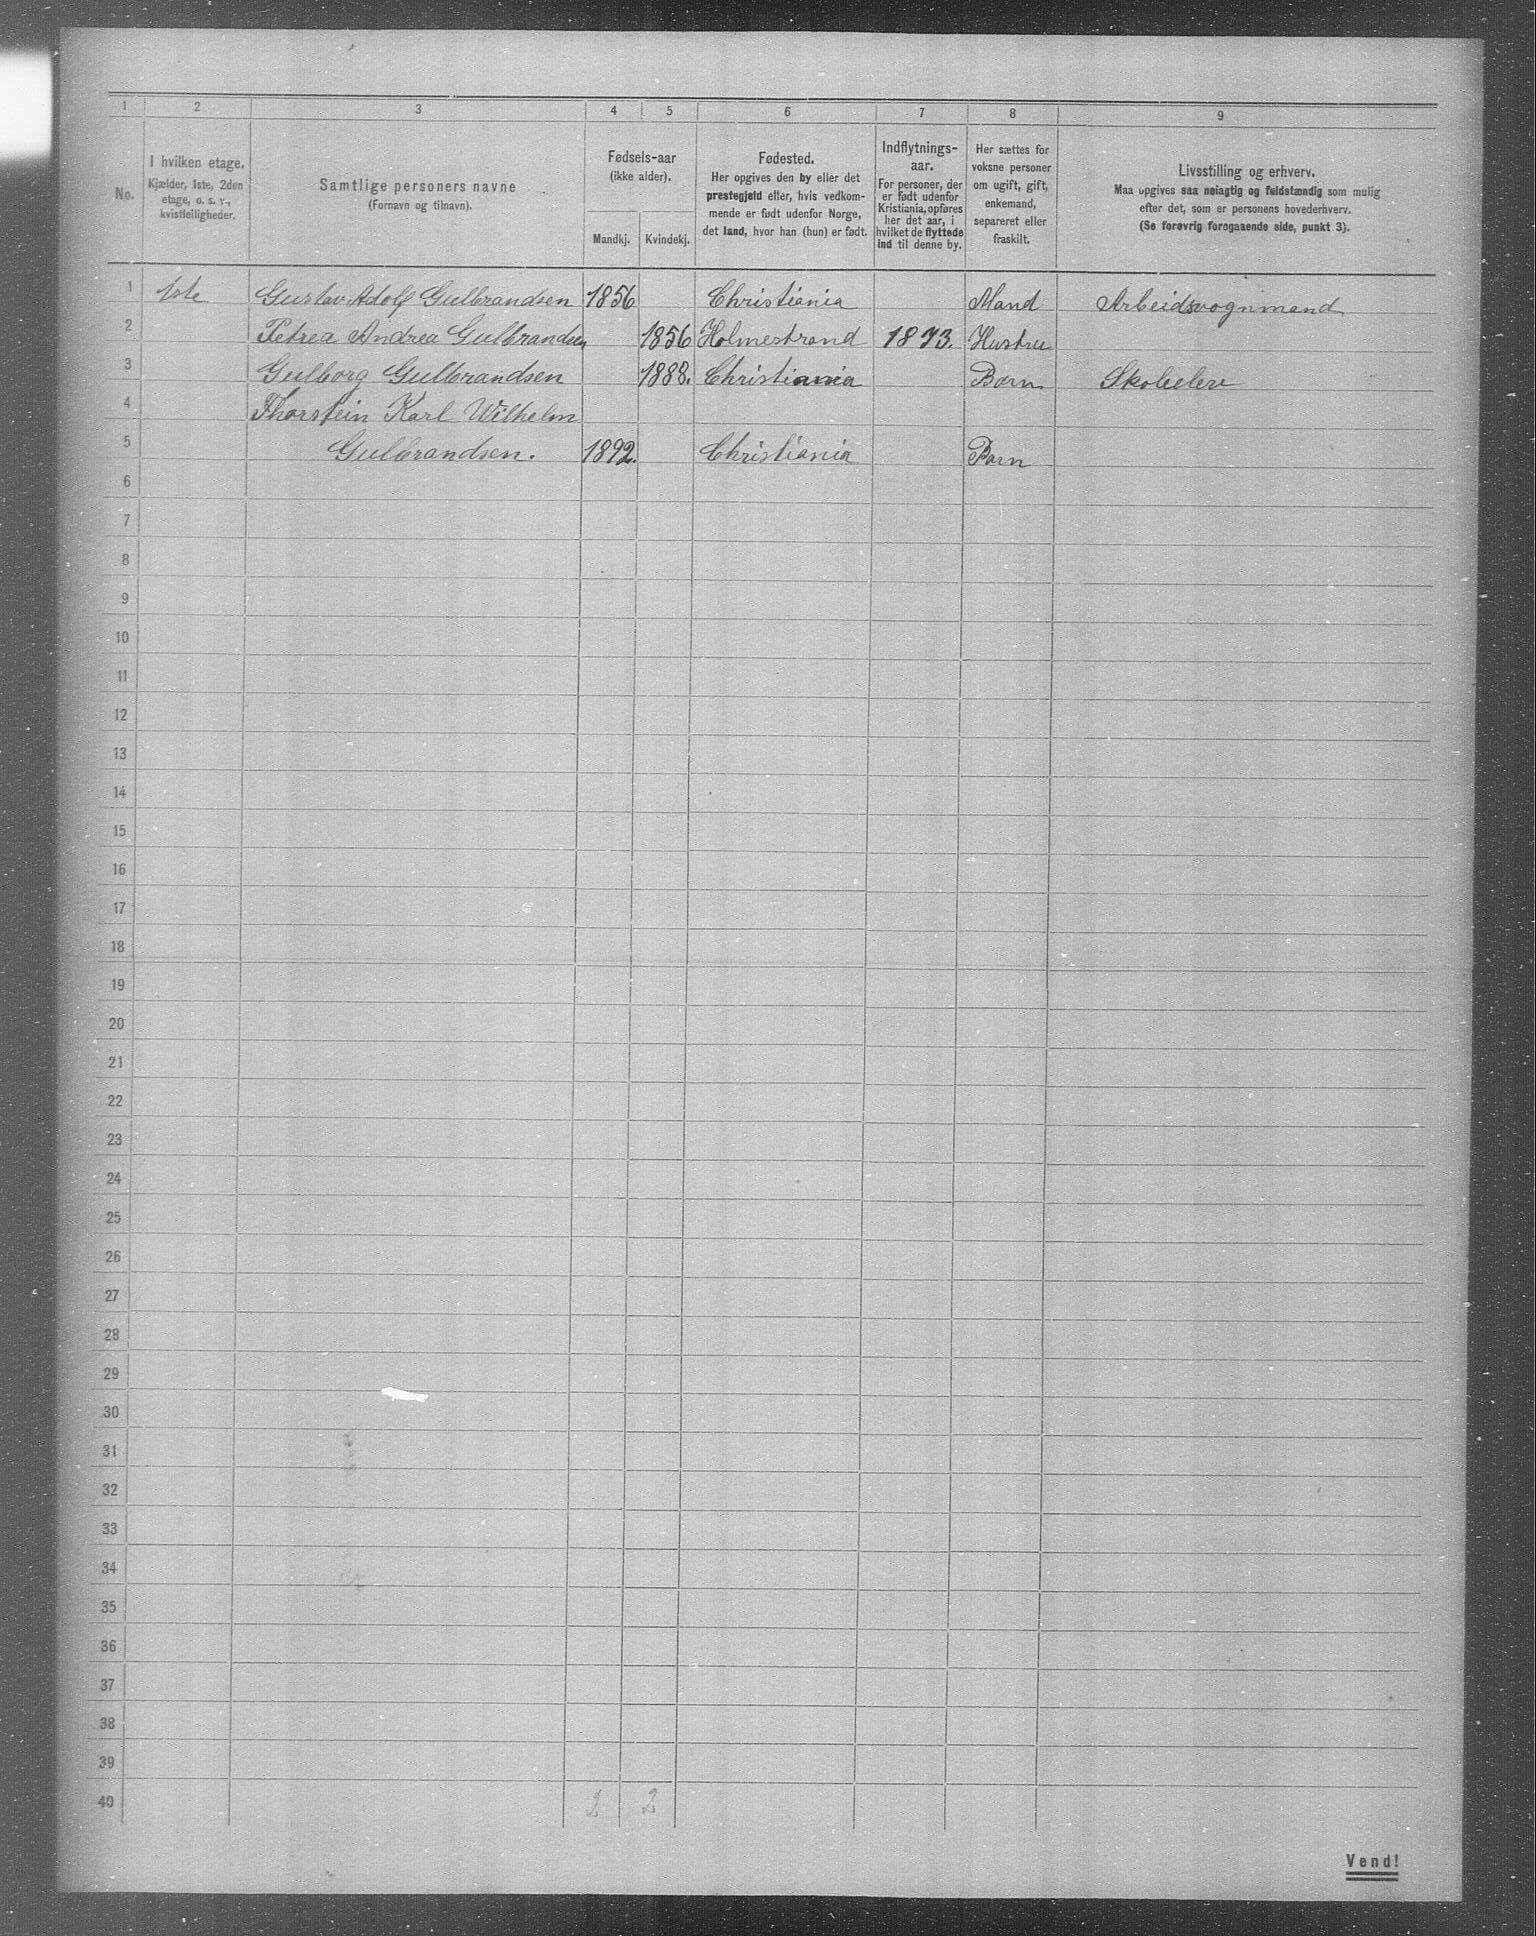 1 2 3 4 5 6 7 8 9
No.
I hvilken etage.
Kjælder, 1ste, 2den
etage, o. s. v.,
kvistleiligheder.
Samtlige personers navne
(Fornavn og tilnavn).
Fødsels-aar
(ikke alder).
Mandkj. Kvindekj.
Fødested.
Her opgives den by eller det
prestegjeld eller, hvis vedkom-
mende er født udenfor Norge,
det land, hvor han (hun) er født.
Indflytnings-
aar.
For personer, der
er født udenfor
Kristiania, opføres
her det aar, i
hvilket de flyttede
ind til denne by.
Her sættes for
voksne personer
om ugift, gift,
enkemand,
separeret eller
fraskilt.
Livsstilling og erhverv.
Maa opgives saa nøiagtig og fuldstændig som mulig
efter det, som er personens hovederhverv.
(Se forøvrig foregaaende side, punkt 3).
1 1ste Gustav Adolf Gulbrandsen 1856 Christiania Mand Arbeidsvognmand
2 Petrea Andrea Gulbrandsen 1856 Holmestrand 1873. Hustru
3 Gulborg Gulbrandsen 1888. Christiania Barn Skoleelev
4 Thorstein Karl Wilhelm
5 Gulbrandsen. 1892. Christiania Barn
6
7
8
9
10
11
12
13
14
15
16
17
18
19
20
21
22
23
24
25
26
27
28
29
30
31
32
33
34
35
36
37
38
39
40 2 2
Vend!